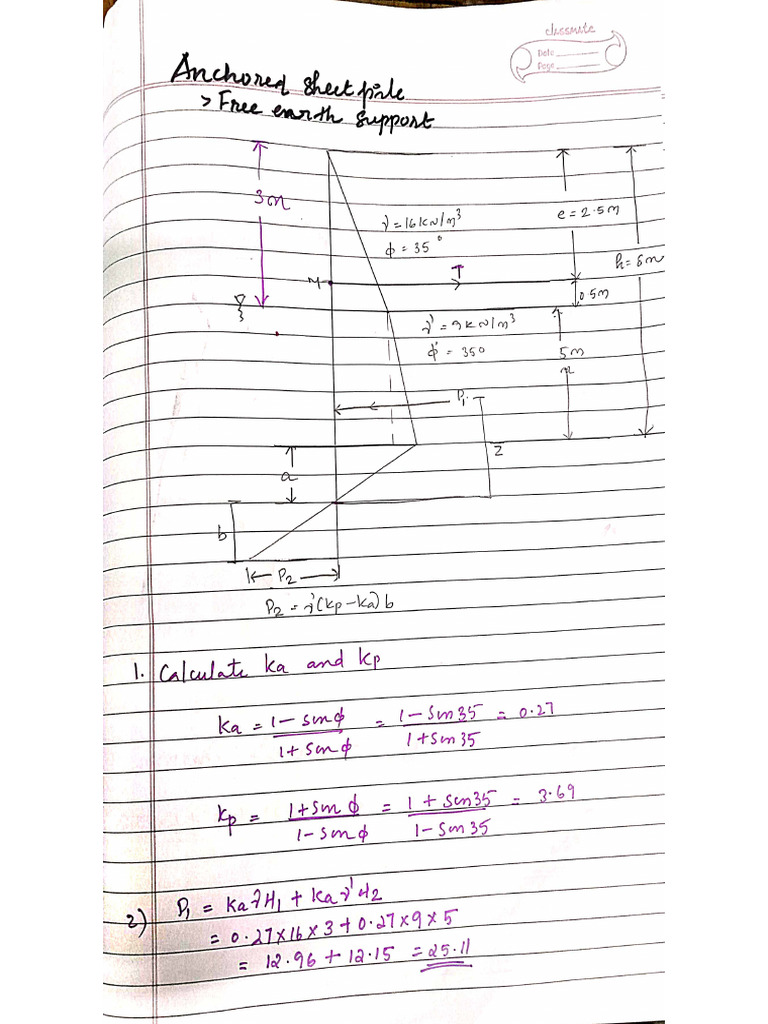 classmate
Date
Page
Anchored sheet pile
> Free earth support
3m
γ = 16 kN/m³
ϕ = 35°
e = 2.5m
h = 8m
M
T
0.5m
γ' = 9 kN/m³
ϕ' = 35°
5m
P₁
a
z
b
P₂
P₂ = γ'(kp - ka) b
1. Calculate ka and kp
ka = 1 - sinϕ / 1 + sinϕ = 1 - sin35 / 1 + sin35 = 0.27
kp = 1 + sinϕ / 1 - sinϕ = 1 + sin35 / 1 - sin35 = 3.69
2) P₁ = kaγH₁ + kaγ'H₂
= 0.27×16×3 + 0.27×9×5
= 12.96 + 12.15 = 25.11